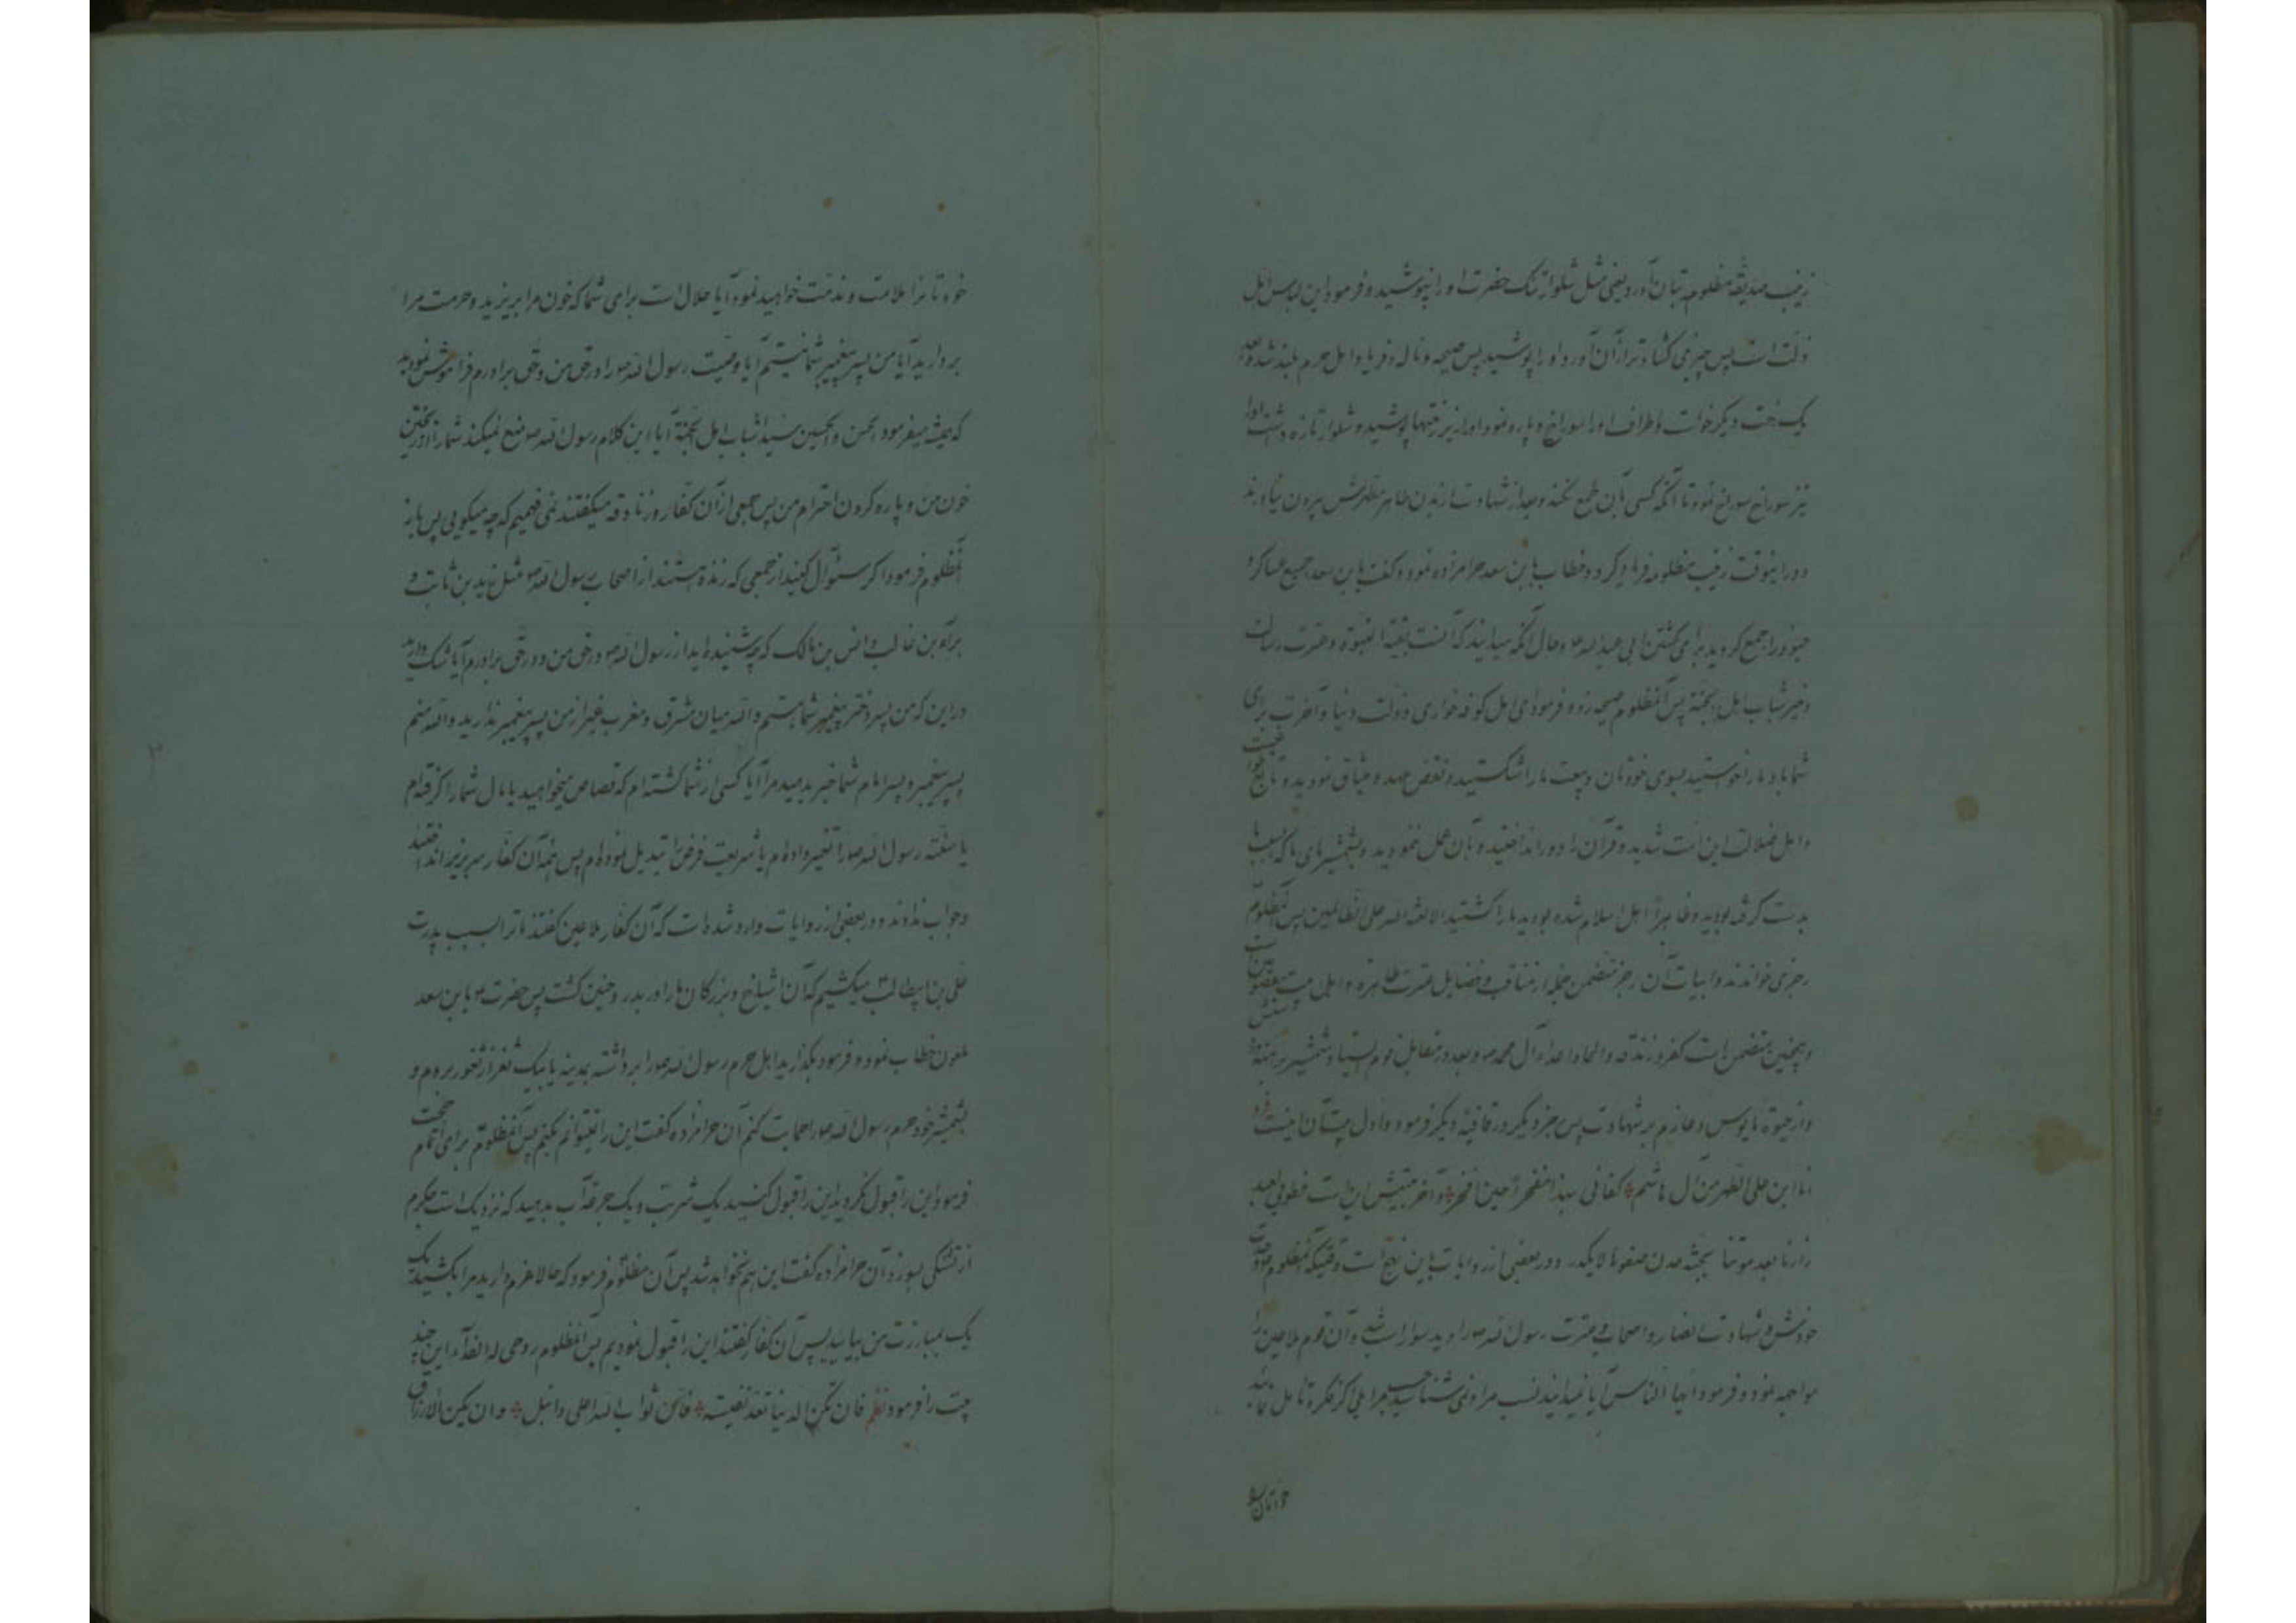 زینب صدیقه مظلومه تبان آورد یعنی مثل شلوار تنک حضرت او را نپوشید و فرمود این لباس اهل
ذلت است پس چیزی کشادتر از آن آورد او را پوشید پس صیحه و ناله و فریاد اهل حرم بلند شد بعد
یک رخت دیگر خواست اطراف او را سوراخ و پاره نمود او را زیر رختها پوشید و شلوار تازه داشت او را
نیز سوراخ سوراخ نمود تا آنکه کسی بآن طمع نکند و بعد از شهادت از بدن طاهر مطهرش بیرون نیاورند
و در اینوقت زینب مظلومه فریاد کرد و خطاب بابن سعد حرامزاده نمود و کفت یابن سعد جمیع عساکر و
جنود را جمع کردید برای کشتن ابی عبدالله و حال آنکه میدانید که آنست بقیة النبوة و عترت رسالت
و خیر شباب اهل الجنة پس آنمظلوم صیحه زد و فرمود ای اهل کوفه خواری و ذلت دنیا و آخرت برای
شما باد ما را خواستید بسوی خودتان و بیعت ما را شکستید و نقض عهد و میثاق نمودید و تابع
و اهل ضلالت این امت شدید و قرآن را دور انداختید و بآن عمل ننمودید و بشمشیرهای ما که بسبب ما
بدست کرفته بودید و ظاهراً اهل اسلام شده بودید ما را کشتید الا لعنة الله علی الظالمین پس آنمظلوم
رجزی خواندند و ابیات آن رجز متضمن جمله از مناقب و فضایل عترت طاهره و اهل بیت
و همچنین متضمن است کفر و زندقه و الحاد اعداء آل محمد و بعد در مقابل قوم ایستاد و شمشیر برهنه
و از حیوة مایوس و عازم بر شهادت پس رجز دیکر در قافیه دیکر فرمود و اول بیت آن اینست
انا ابن علی الطهر من آل هاشم * کفانی بهذا مفخر احین افخر * و آخر بیتش این است فطوبی لعبد
زارنا بعد موتنا بجنة عدن صفوها لا یکدر و در بعضی از روایات باین نهج است وقتیکه آنمظلوم
خودش و شهادت انصار و اصحاب و عترت رسول الله را دید سوار اسب شد و آن قوم ملاعین را
مواجهه نمود و فرمود ایها الناس آیا نمیدانید نسب مرا و نمی شناسید مرا بلی اکر فکر و تامل نمائید
خودتان را
خودتانرا ملامت و مذمت خواهید نمود آیا حلال است برای شما که خون مرا بریزید و حرمت مرا
بردارید آیا من پسر پیغمبر شما نیستم آیا وصیت رسول الله را در حق من و حق برادرم فراموش نمودید
که همیشه میفرمود الحسن و الحسین سیدا شباب اهل الجنة آیا این کلام رسول الله منع نمیکند شما را از ریختن
خون من و پاره کردن احترام من پس جمعی از آن کفار و زنادقه میکفتند نمی فهمیم که چه میکویی پس باز
آنمظلوم فرمود اکر سئوال کنید از جمعی که زنده هستند از اصحاب رسول الله مثل زید بن ثابت و
براء بن عازب و انس بن مالک که چه شنیده اید از رسول الله در حق من و در حق برادرم آیا شک دارید
در این که من پسر دختر پیغمبر شما هستم والله میان مشرق و مغرب غیر از من پسر پیغمبر ندارید والله منم
پسر پیغمبر و پسر امام شما خبر بدهید مرا آیا کسی از شما کشته ام که قصاص میخواهید یا مال شما را کرفته ام
یا سنت رسول الله را تغییر داده ام یا شریعت فرض را تبدیل نموده ام پس همه آن کفار سر بزیر انداختند
و جواب ندادند و در بعضی از روایات وارد شده است که آن کفار ملاعین کفتند ما ترا بسبب پدرت
علی بن ابیطالب میکشیم که آن اشیاخ و بزرکان ما را در بدر و حنین کشت پس حضرت بابن سعد
ملعون خطاب نمود و فرمود بکذارید اهل حرم رسول الله را برداشته بمدینه یا بیک ثغر از ثغور بروم و
بشمشیر خود حرم رسول الله را حمایت کنم آن حرامزاده کفت این را نمیتوانم بکنم پس آنمظلوم برای اتمام حجت
فرمود این را قبول نکردید این را قبول کنید یک شربت و یک جرعه آب بدهید که نزدیک است جکرم
از تشنکی بسوزد آن حرامزاده کفت این هم نخواهد شد پس آن مظلوم فرمود که حالا عزم دارید مرا بکشید یک
یک بمبارزت من بیایید پس آن کفار کفتند این را قبول نمودیم پس آنمظلوم روحی له الفداء این چند
بیت را فرمود نظم فان تکن الدنیا تعد نفیسه * فان ثواب الله اعلی و انبل * و ان یکن الارزاق